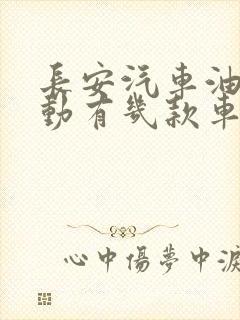 長安汽車油
動有幾款車
心中傷夢中淚